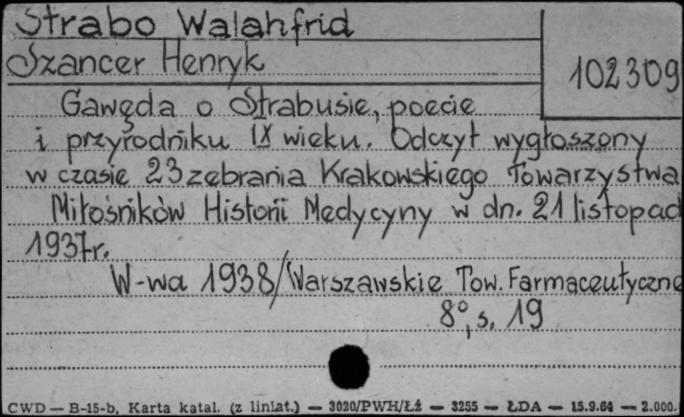 Strabo Walahfrid
Szancer Henryk
102309
Gawęda o Strabusie, poecie
i przyrodniku IX wieku. Odczyt wygłoszony
w czasie 23 zebrania Krakowskiego Towarzystwa
Miłośników Historii Medycyny w dn. 21 listopad
1937r.
W-wa 1938/Warszawskie Tow. Farmaceutyczne
8°, s. 19
CWD — B-15-b, Karta katal. (z liniat.) — 3020/PWH/Łż — 3255 — ŁDA — 15.9.64 — 2.000.